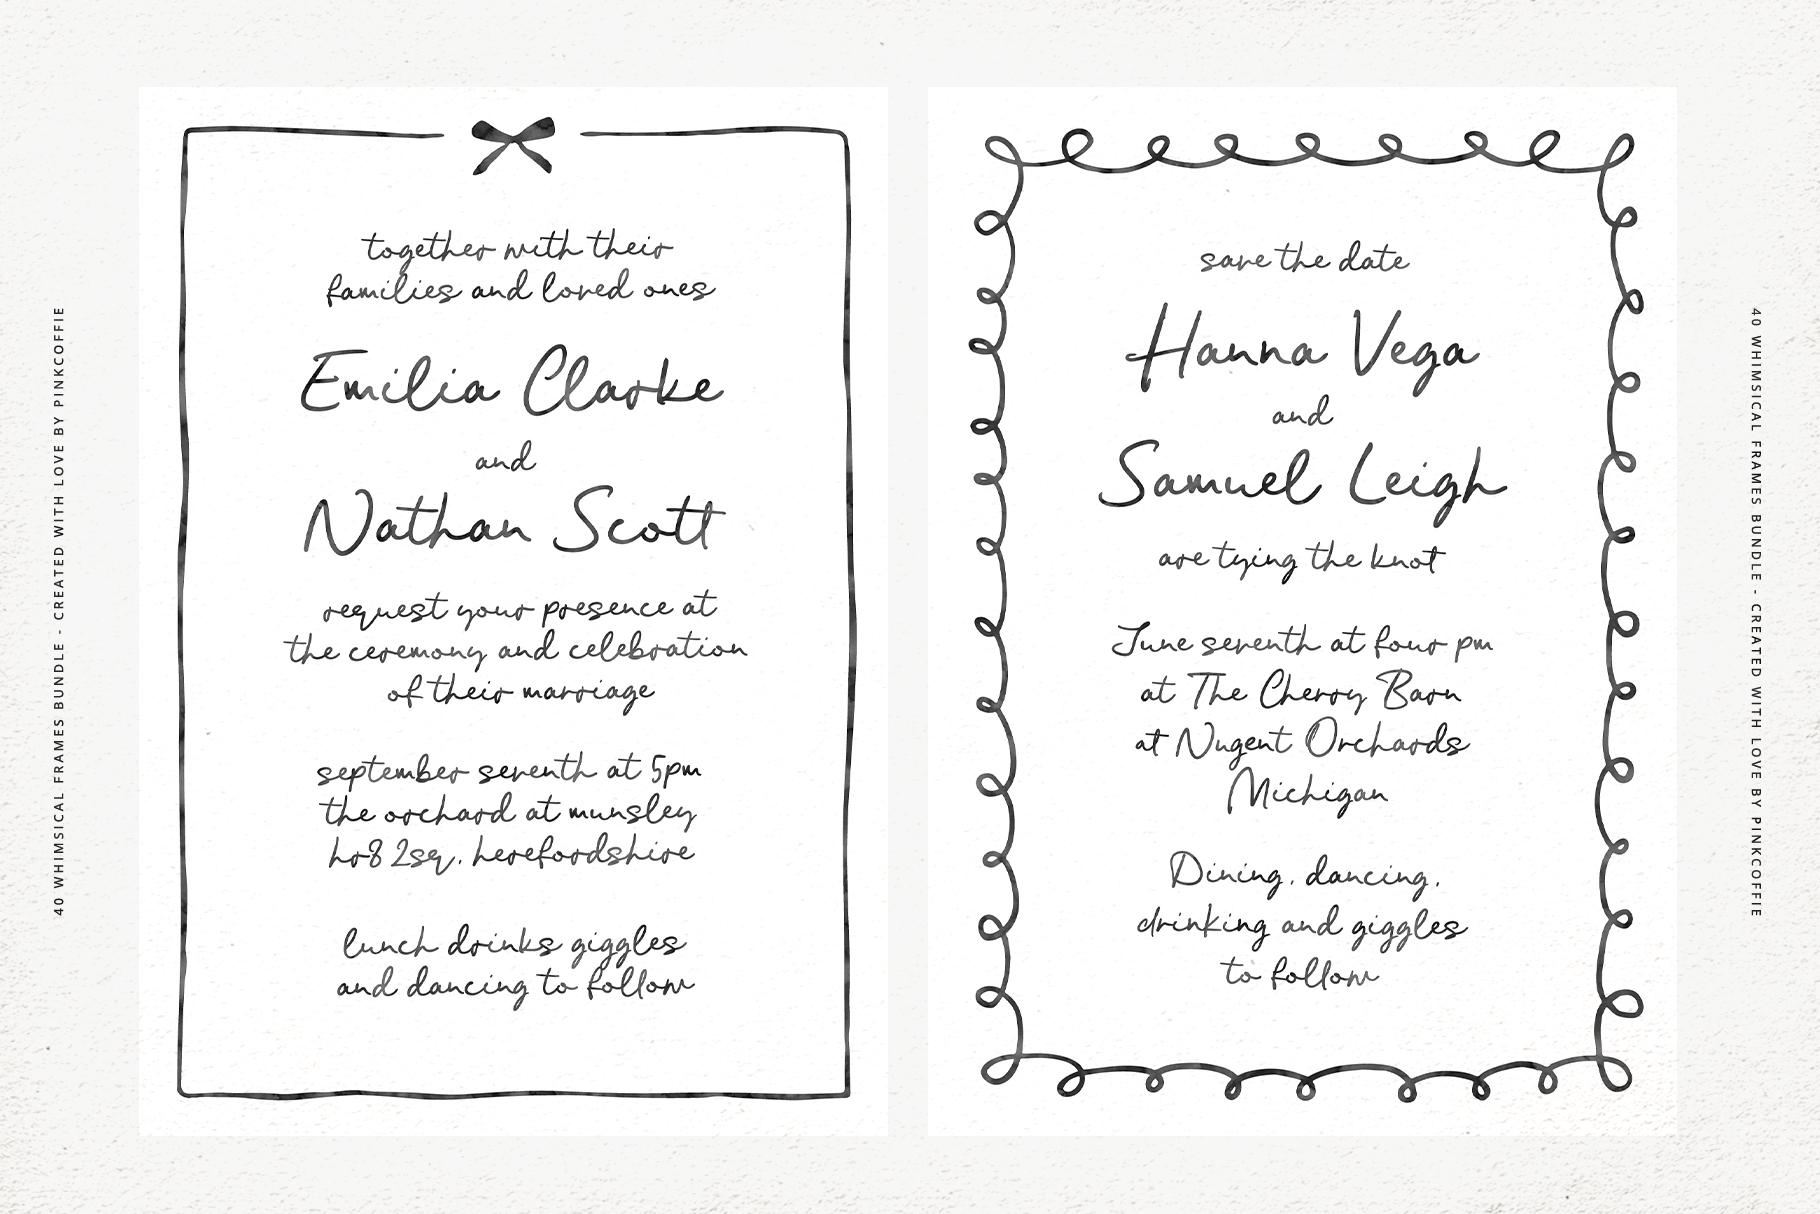 40 WHIMSICAL FRAMES BUNDLE - CREATED WITH LOVE BY PINKCOFFIE
together with their
families and loved ones
Emilia Clarke
and
Nathan Scott
request your presence at
the ceremony and celebration
of their marriage
september seventh at 5pm
the orchard at munsley
hr8 2sq. herefordshire
lunch drinks giggles
and dancing to follow
save the date
Hanna Vega
and
Samuel Leigh
are tying the knot
June seventh at four pm
at The Cherry Barn
at Nugent Orchards
Michigan
Dining, dancing,
drinking and giggles
to follow
40 WHIMSICAL FRAMES BUNDLE - CREATED WITH LOVE BY PINKCOFFIE